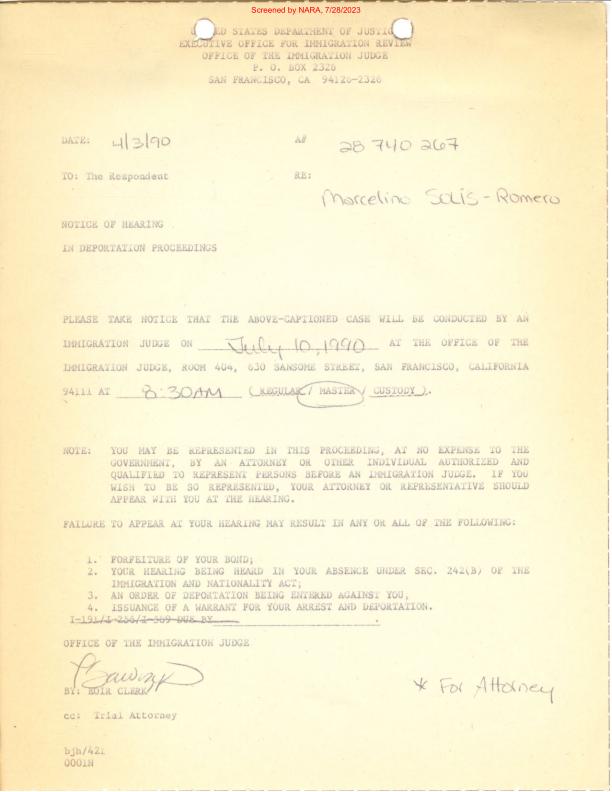 Screened by NARA, 7/28/2023
UNITED STATES DEPARTMENT OF JUSTICE
EXECUTIVE OFFICE FOR IMMIGRATION REVIEW
OFFICE OF THE IMMIGRATION JUDGE
P. O. BOX 2326
SAN FRANCISCO, CA 94126-2326
DATE: 4/3/90 A# 28 740 267
TO: The Respondent RE:
Marcelino SOLIS-Romero
NOTICE OF HEARING
IN DEPORTATION PROCEEDINGS
PLEASE TAKE NOTICE THAT THE ABOVE-CAPTIONED CASE WILL BE CONDUCTED BY AN
IMMIGRATION JUDGE ON July 10, 1990 AT THE OFFICE OF THE
IMMIGRATION JUDGE, ROOM 404, 630 SANSOME STREET, SAN FRANCISCO, CALIFORNIA
94111 AT 8:30AM (REGULAR / MASTER / CUSTODY).
NOTE: YOU MAY BE REPRESENTED IN THIS PROCEEDING, AT NO EXPENSE TO THE
GOVERNMENT, BY AN ATTORNEY OR OTHER INDIVIDUAL AUTHORIZED AND
QUALIFIED TO REPRESENT PERSONS BEFORE AN IMMIGRATION JUDGE. IF YOU
WISH TO BE SO REPRESENTED, YOUR ATTORNEY OR REPRESENTATIVE SHOULD
APPEAR WITH YOU AT THE HEARING.
FAILURE TO APPEAR AT YOUR HEARING MAY RESULT IN ANY OR ALL OF THE FOLLOWING:
1. FORFEITURE OF YOUR BOND;
2. YOUR HEARING BEING HEARD IN YOUR ABSENCE UNDER SEC. 242(B) OF THE
IMMIGRATION AND NATIONALITY ACT;
3. AN ORDER OF DEPORTATION BEING ENTERED AGAINST YOU,
4. ISSUANCE OF A WARRANT FOR YOUR ARREST AND DEPORTATION.
I-191/I-256/I-589 DUE BY
OFFICE OF THE IMMIGRATION JUDGE
BY: EOIR CLERK
* For Attorney
cc: Trial Attorney
bjh/421
0001N